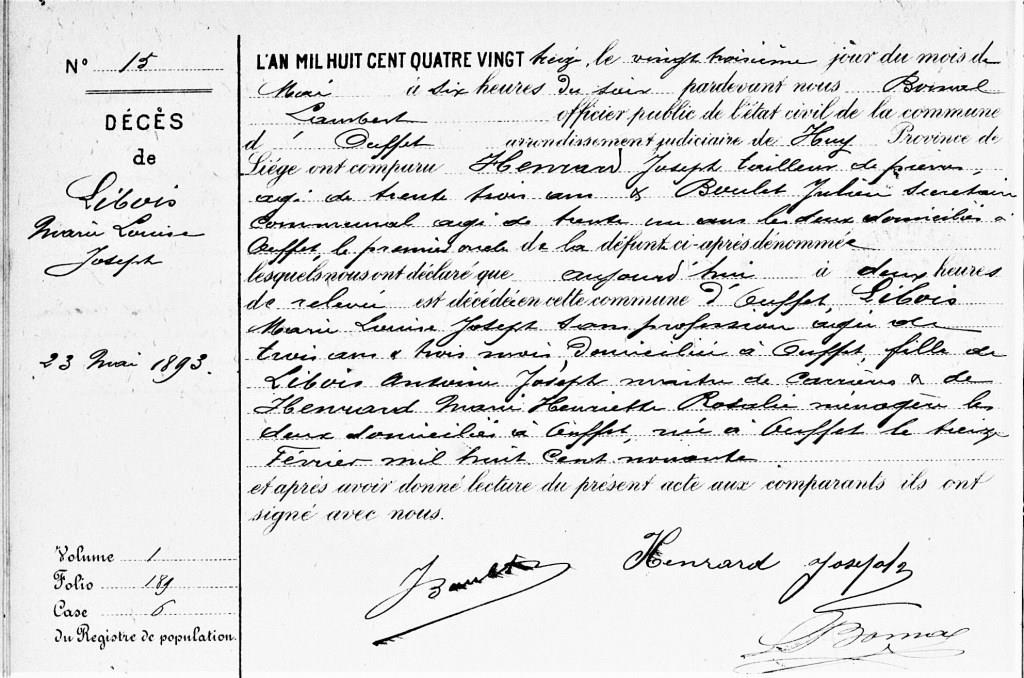 N° 15
DÉCÈS
de
Libois
Marie Louise
Joseph
23 Mai 1893.
Volume 1
Folio 189
Case 6
du Registre de population.
L'AN MIL HUIT CENT QUATRE VINGT treize, le vingt troisième jour du mois de
Mai à six heures du soir pardevant nous Bomal
Lambert officier public de l'état civil de la commune
d' Ouffet arrondissement judiciaire de Huy Province de
Liége ont comparu Henrard Joseph tailleur de pierres,
agé de trente trois ans & Boulet Julien Secretaire
Communal agé de trente un ans les deux domiciliés à
Ouffet, le premier oncle de la défunte ci-après dénommée
lesquels nous ont déclaré que aujourd'hui à deux heures
de relevée est décédée en cette commune d' Ouffet, Libois
Marie Louise Joseph sans profession agée de
trois ans & trois mois, domiciliée à Ouffet, fille de
Libois Antoine Joseph maitre de carrières & de
Henrard Marie Henriette Rosalie ménagère les
deux domiciliés à Ouffet, née à Ouffet le treize
Février mil huit cent nonante
et après avoir donné lecture du présent acte aux comparants ils ont
signé avec nous.
J Boulet Henrard Joseph
L Bomal